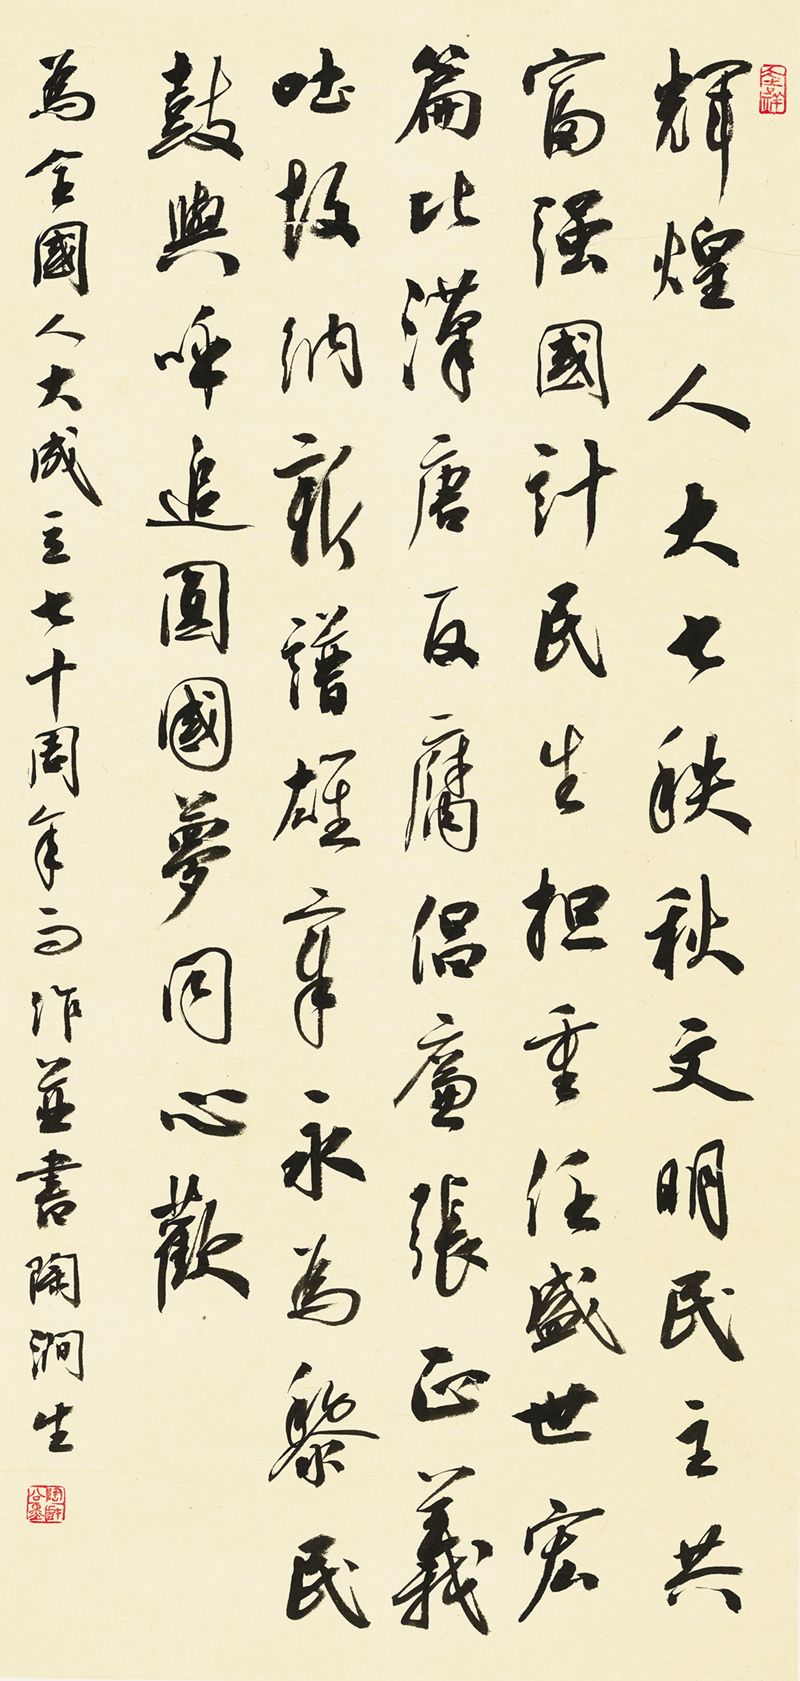 輝煌人大七秩秋文明民主共
富强國計民生担重任盛世宏
篇比漢唐反腐倡廉張正義
吐故納新譜雄章永為黎民
鼓與呼追圆國夢同心歡
為全國人大成立七十周年而作並書陶澗生